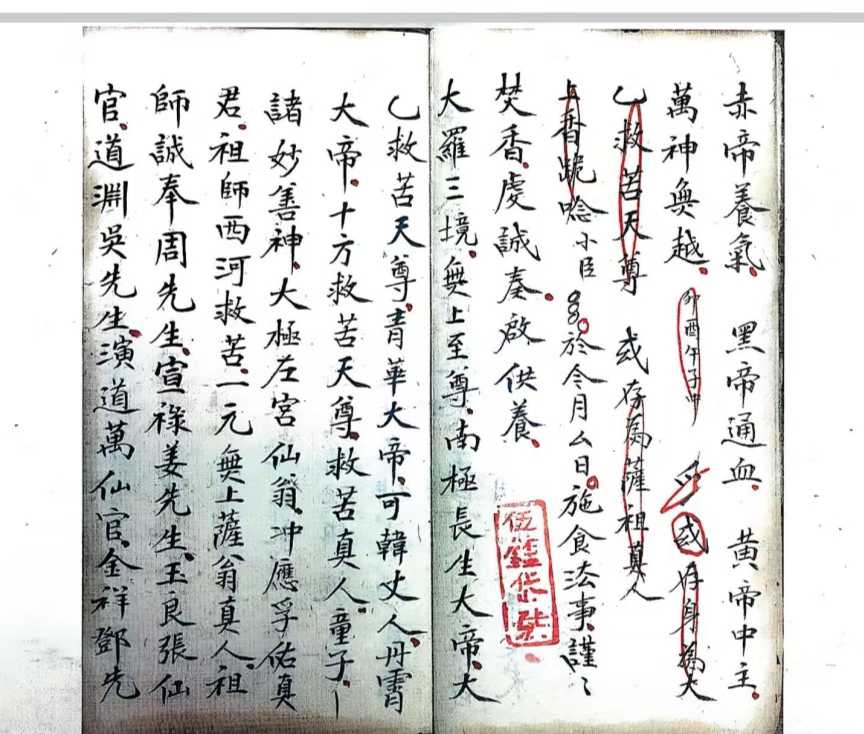 赤帝養氣、黑帝通血、黃帝中主、
萬神無越、卯酉午子中 或存身為大
乙救苦天尊 或存為薩祖真人
上香跪唸小臣〇〇於今月ム日。施食法事、謹〻
焚香、虔誠奏啟供養、
大羅三境、無上至尊、南極長生大帝、大
乙救苦天尊、青華大帝、可韓丈人、丹霄
大帝、十方救苦天尊、救苦真人、童子、
諸妙善神、大極左宮仙翁、冲應孚佑真
君、祖師西河救苦、一元無上薩翁真人、祖
師誠奉周先生、宣祿姜先生、玉良張仙
官、道淵吳先生、演道萬仙官、金祥鄧先